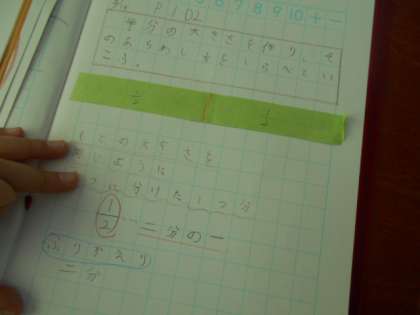 7 8 9 10 + -
P102
半分の大きさを作り、そ
のあらわし方をしらべてい
こう。
1/2 1/2
もとの大きさを
同じように
2つに分けた1つ分
1/2…二分の一
ふりかえり
二分